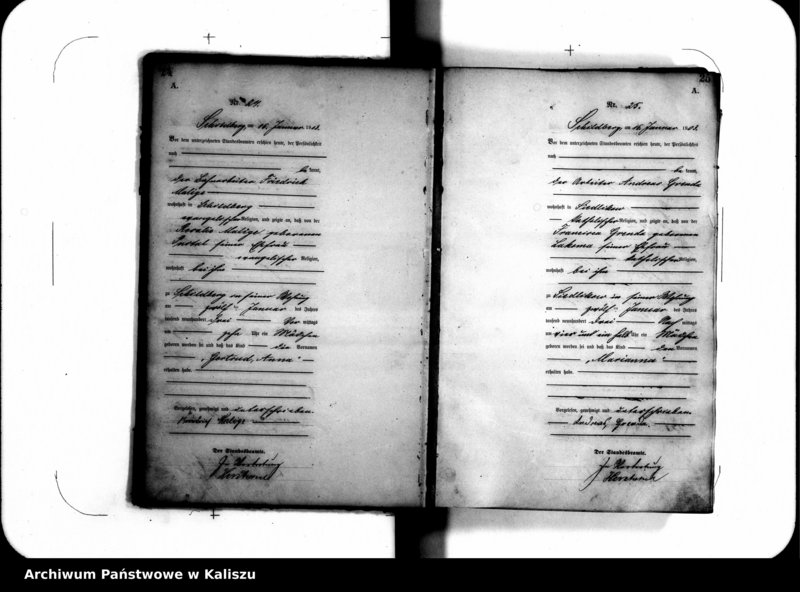 24
A.
Nr. 24.
Schildberg am 16. Januar 1903.
Vor dem unterzeichneten Standesbeamten erschien heute, der Persönlichkeit
nach
be kannt,
der Friedrich
Malige
wohnhaft in Schildberg
evangelischer Religion, und zeigte an, daß von der
Rosalie Malige geborenen
seiner Ehefrau
evangelischer Religion,
wohnhaft bei ihm
zu Schildberg in seiner Wohnung
am zwölf ten Januar des Jahres
tausend neunhundert drei Vor mittags
um zehn Uhr ein Mädchen
geboren worden sei und daß das Kind den Vornamen
„Gertrud, Anna"
erhalten habe.
Vorgelesen, genehmigt und unterschrieben
Friedrich Malige
Der Standesbeamte.
In Vertretung
25
A.
Nr. 25.
Schildberg am 16. Januar 1903.
Vor dem unterzeichneten Standesbeamten erschien heute, der Persönlichkeit
nach
be kannt,
der Arbeiter Andreas Grenda
wohnhaft in Siedlikow
katholischer Religion, und zeigte an, daß von der
Francisca Grenda geborenen
seiner Ehefrau
katholischer Religion,
wohnhaft bei ihm
zu Siedlikow in seiner Wohnung
am zwölf ten Januar des Jahres
tausend neunhundert drei Nach mittags
um vier und ein halb Uhr ein Mädchen
geboren worden sei und daß das Kind den Vornamen
„Marianna"
erhalten habe.
Vorgelesen, genehmigt und unterschrieben
Andreas Grenda
Der Standesbeamte.
In Vertretung
Archiwum Państwowe w Kaliszu